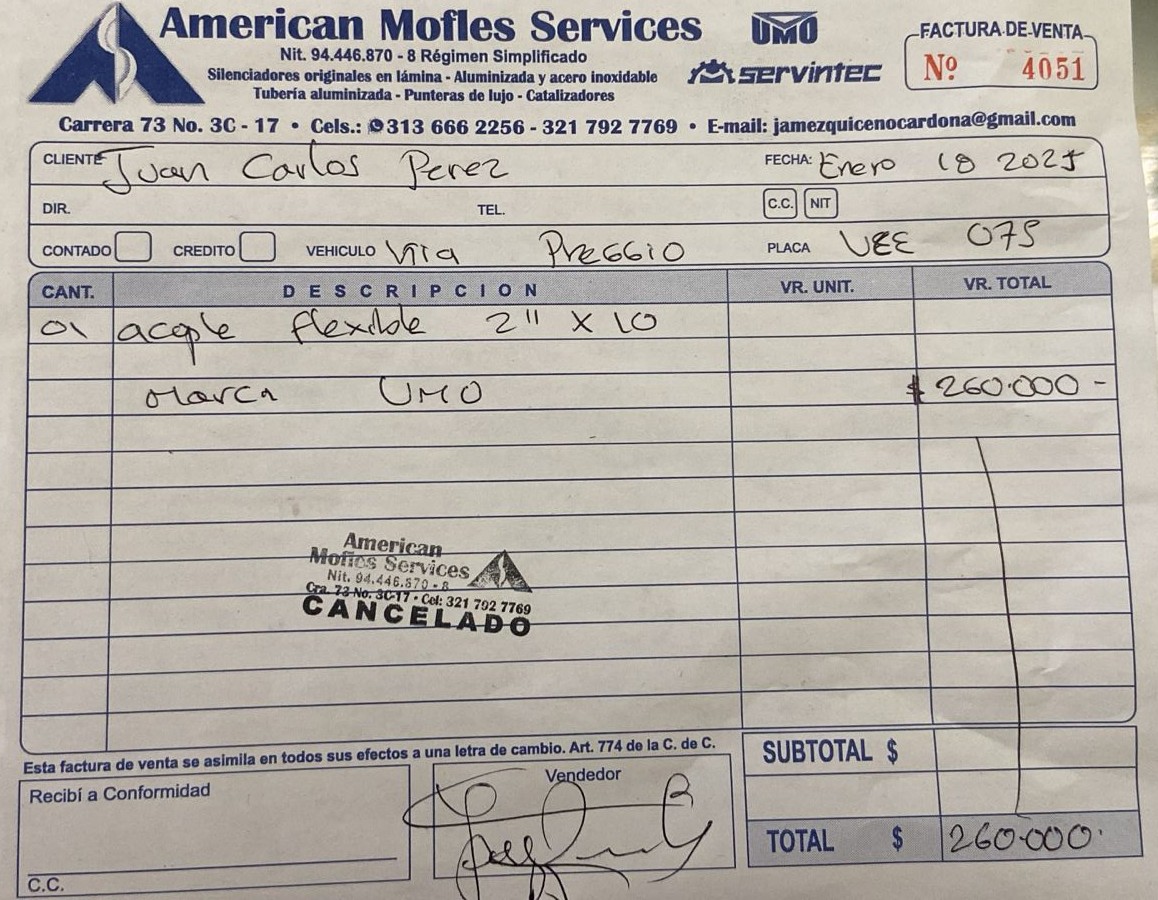 American Mofles Services
UMO
Nit. 94.446.870 - 8 Régimen Simplificado
Silenciadores originales en lámina - Aluminizada y acero inoxidable
Tubería aluminizada - Punteras de lujo - Catalizadores
servintec
FACTURA DE VENTA
Nº 4051
Carrera 73 No. 3C - 17 • Cels.: 313 666 2256 - 321 792 7769 • E-mail: jamezquicenocardona@gmail.com
CLIENTE Juan Carlos Perez FECHA: Enero 18 2025
DIR. TEL. C.C. NIT
CONTADO CREDITO VEHICULO PLACA UEE 075
CANT. DESCRIPCION VR. UNIT. VR. TOTAL
01 acople flexible 2" X 10
Marca UMO $ 260.000 -
American
Mofles Services
Nit. 94.446.870 - 8
Cra. 73 No. 3C-17 • Cel: 321 792 7769
CANCELADO
Esta factura de venta se asimila en todos sus efectos a una letra de cambio. Art. 774 de la C. de C.
SUBTOTAL $
Recibí a Conformidad
Vendedor
TOTAL $ 260.000.
C.C.